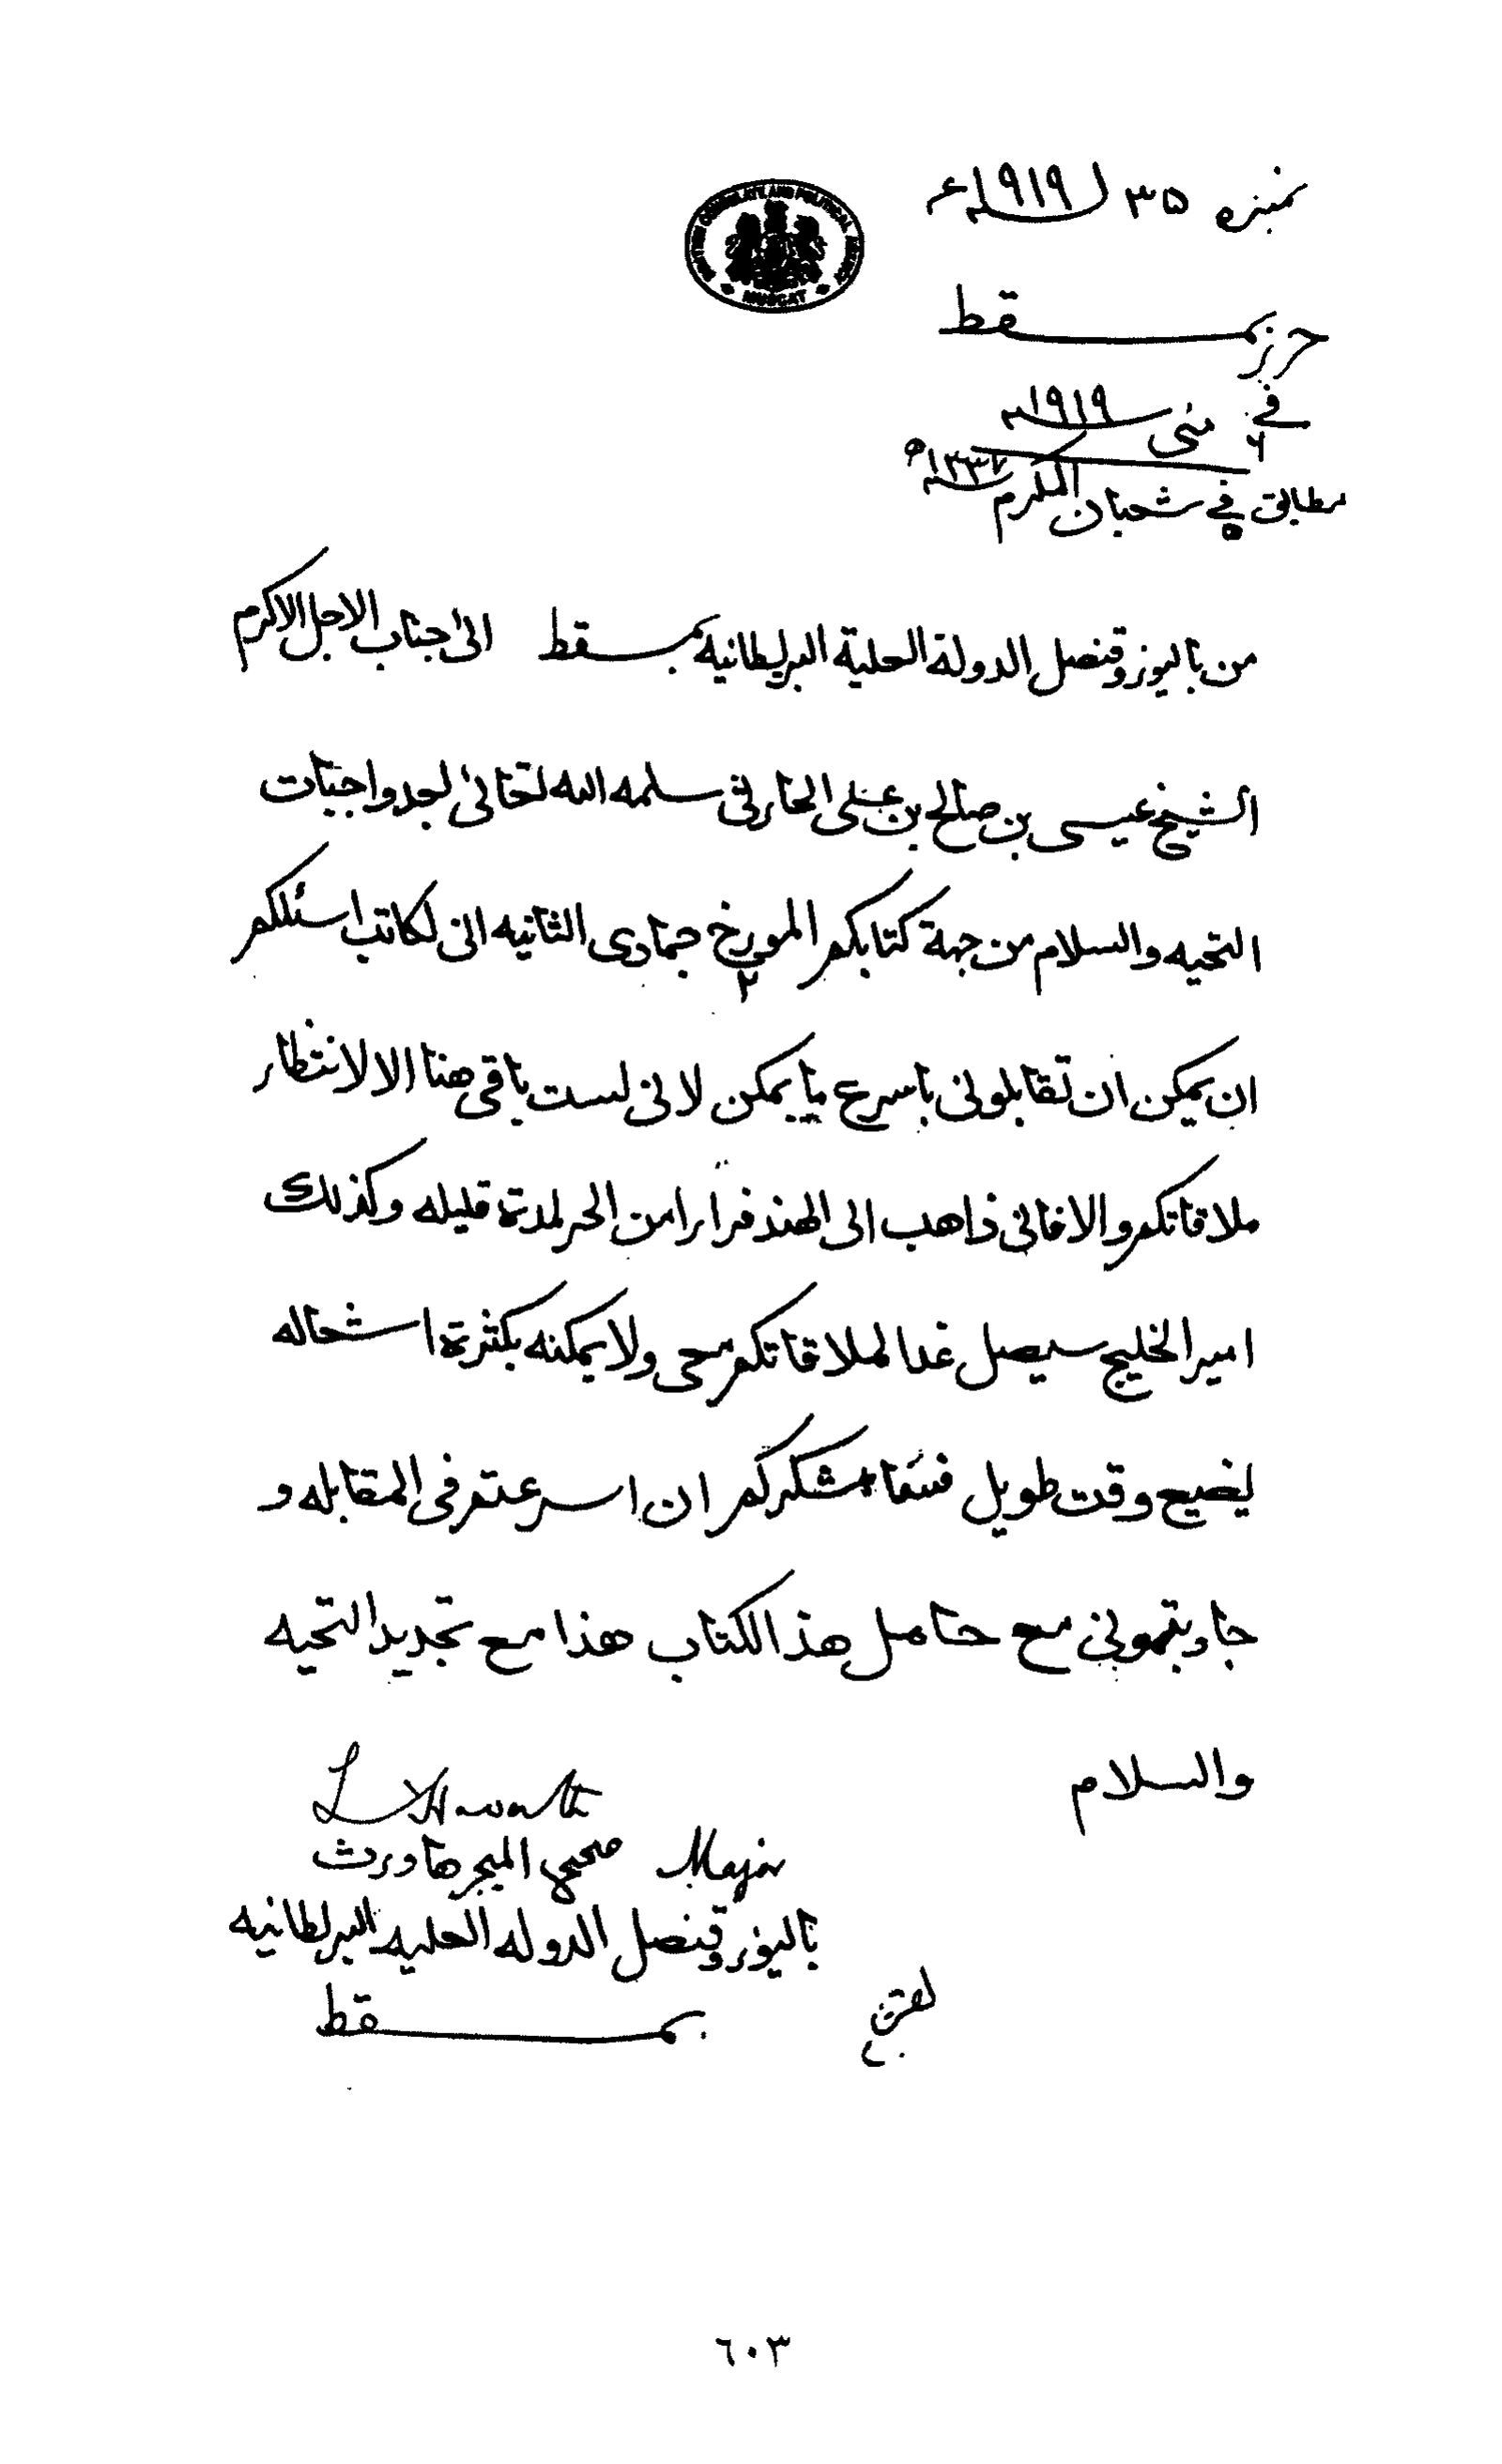 نمبره ۳۵ ل ۱۹۱۹ء
BRITISH CONSULATE AND POLITICAL AGENCY
MUSCAT
حرر بمسقط
في ۶ مئى ۱۹۱۹
مطابق في ۵ شعبان المكرم ۱۳۳۷ه
من باليوز وقنصل الدولة العلية البريطانيه بمسقط الى جناب الاجل الاكرم
الشيخ عيسى بن صالح بن على الحارثى سلمه الله تعالىٰ بعد واجبات
التحيه والسلام من جهة كتابكم المورخ ٢ جمادى الثانيه انى لكاتب اسئلكم
ان يمكن ان تقابلونى باسرع ما يمكن لانى لست باقى هنا الا لانتظار
ملاقاتكم والا فانى ذاهب الى الهند فرارا من الحر لمدة قليله وكذلك
امير الخليج سيصل غدا لملاقاتكم معى ولا يمكنه بكثرة اشغاله
يضيع وقت طويل نشكركم ان اسرعتم فى المقابله و
جاوبتمونى مع حامل هذا الكتاب هذا مع تجديد التحيه
والسلام
L Haworth
Major صحيح الميجر هاورث
باليوز وقنصل الدوله العليه البريطانيه
بمسقط
٦٠٣